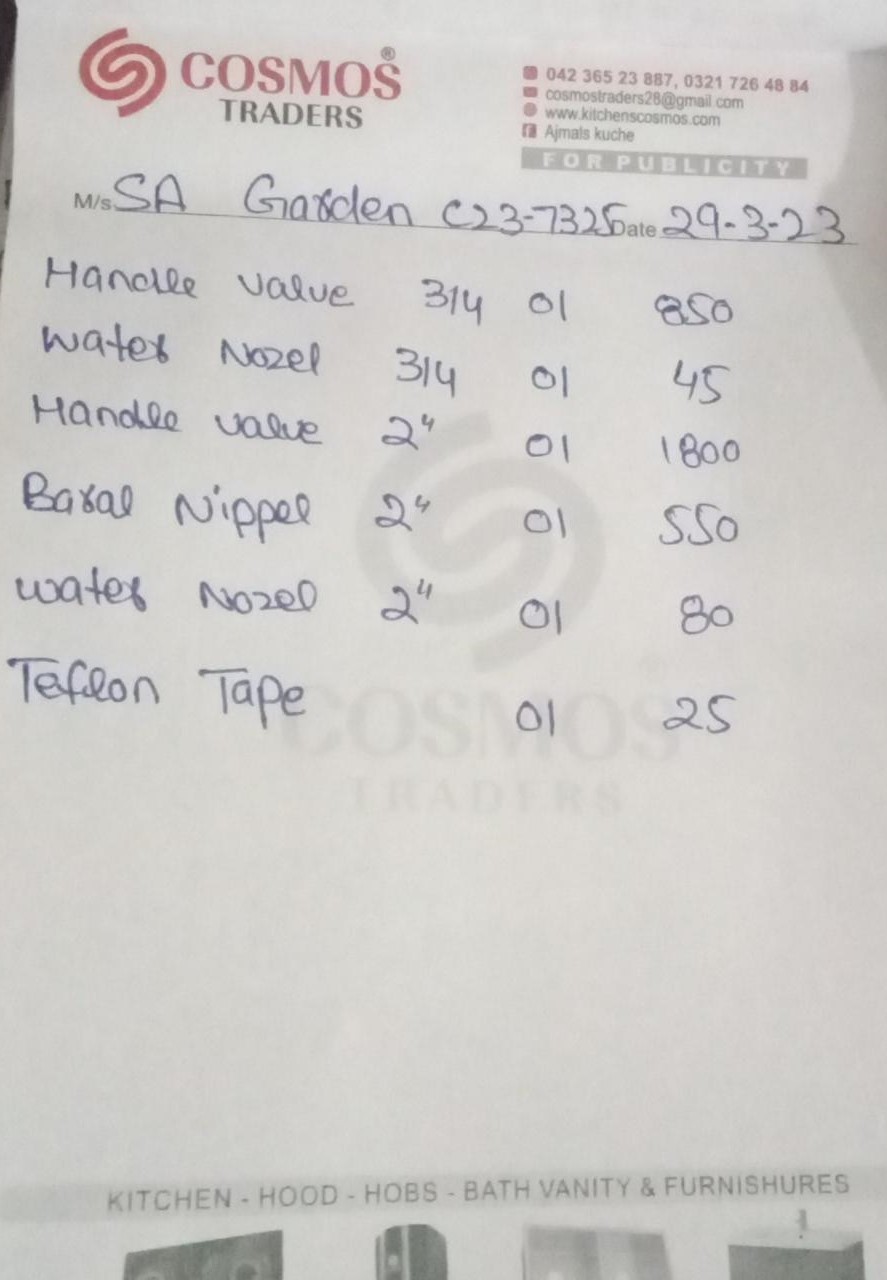 COSMOS®
TRADERS
042 365 23 887, 0321 726 48 84
cosmostraders28@gmail.com
www.kitchenscosmos.com
Ajmals kuche
FOR PUBLICITY
M/s. SA Garden C23-7325 Date 29-3-23
Handle value 3/4 01 850
Water Nozel 3/4 01 45
Handle value 2" 01 1800
Baral Nippel 2" 01 550
Water Nozel 2" 01 80
Teflon Tape 01 25
COSMOS
TRADERS
KITCHEN - HOOD - HOBS - BATH VANITY & FURNISHURES